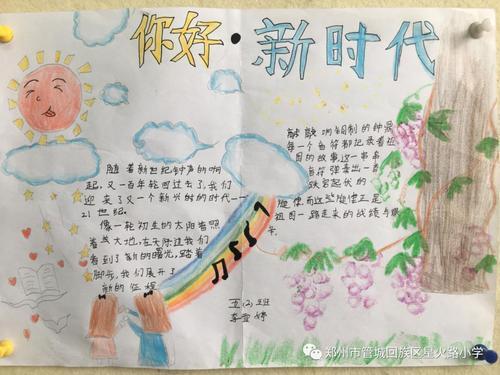 你好 新时代
随着新世纪钟声的响
起,又一百年轮回过去了,我们
迎来了又一个新兴的时代——
21世纪.
像一轮初生的太阳普照
着大地,在天际边我们
看到了新的曙光,踏着
脚步,我们展开了
新的征程
敲响铜制的钟
每一个音符都记录着
国的故事,这一串串
音符弹奏出一
跌宕起伏的
旋律,而这些旋律正是
祖国一路走来的战绩与
李雪婷
郑州市管城回族区星火路小学